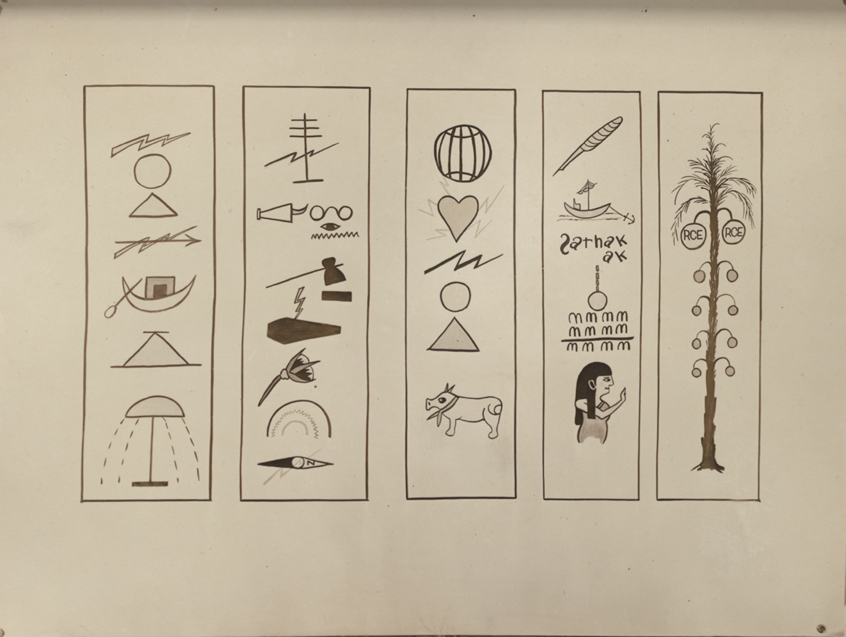 Sathak
ak
m m m m
m m m m
m m m m
RCE RCE
N